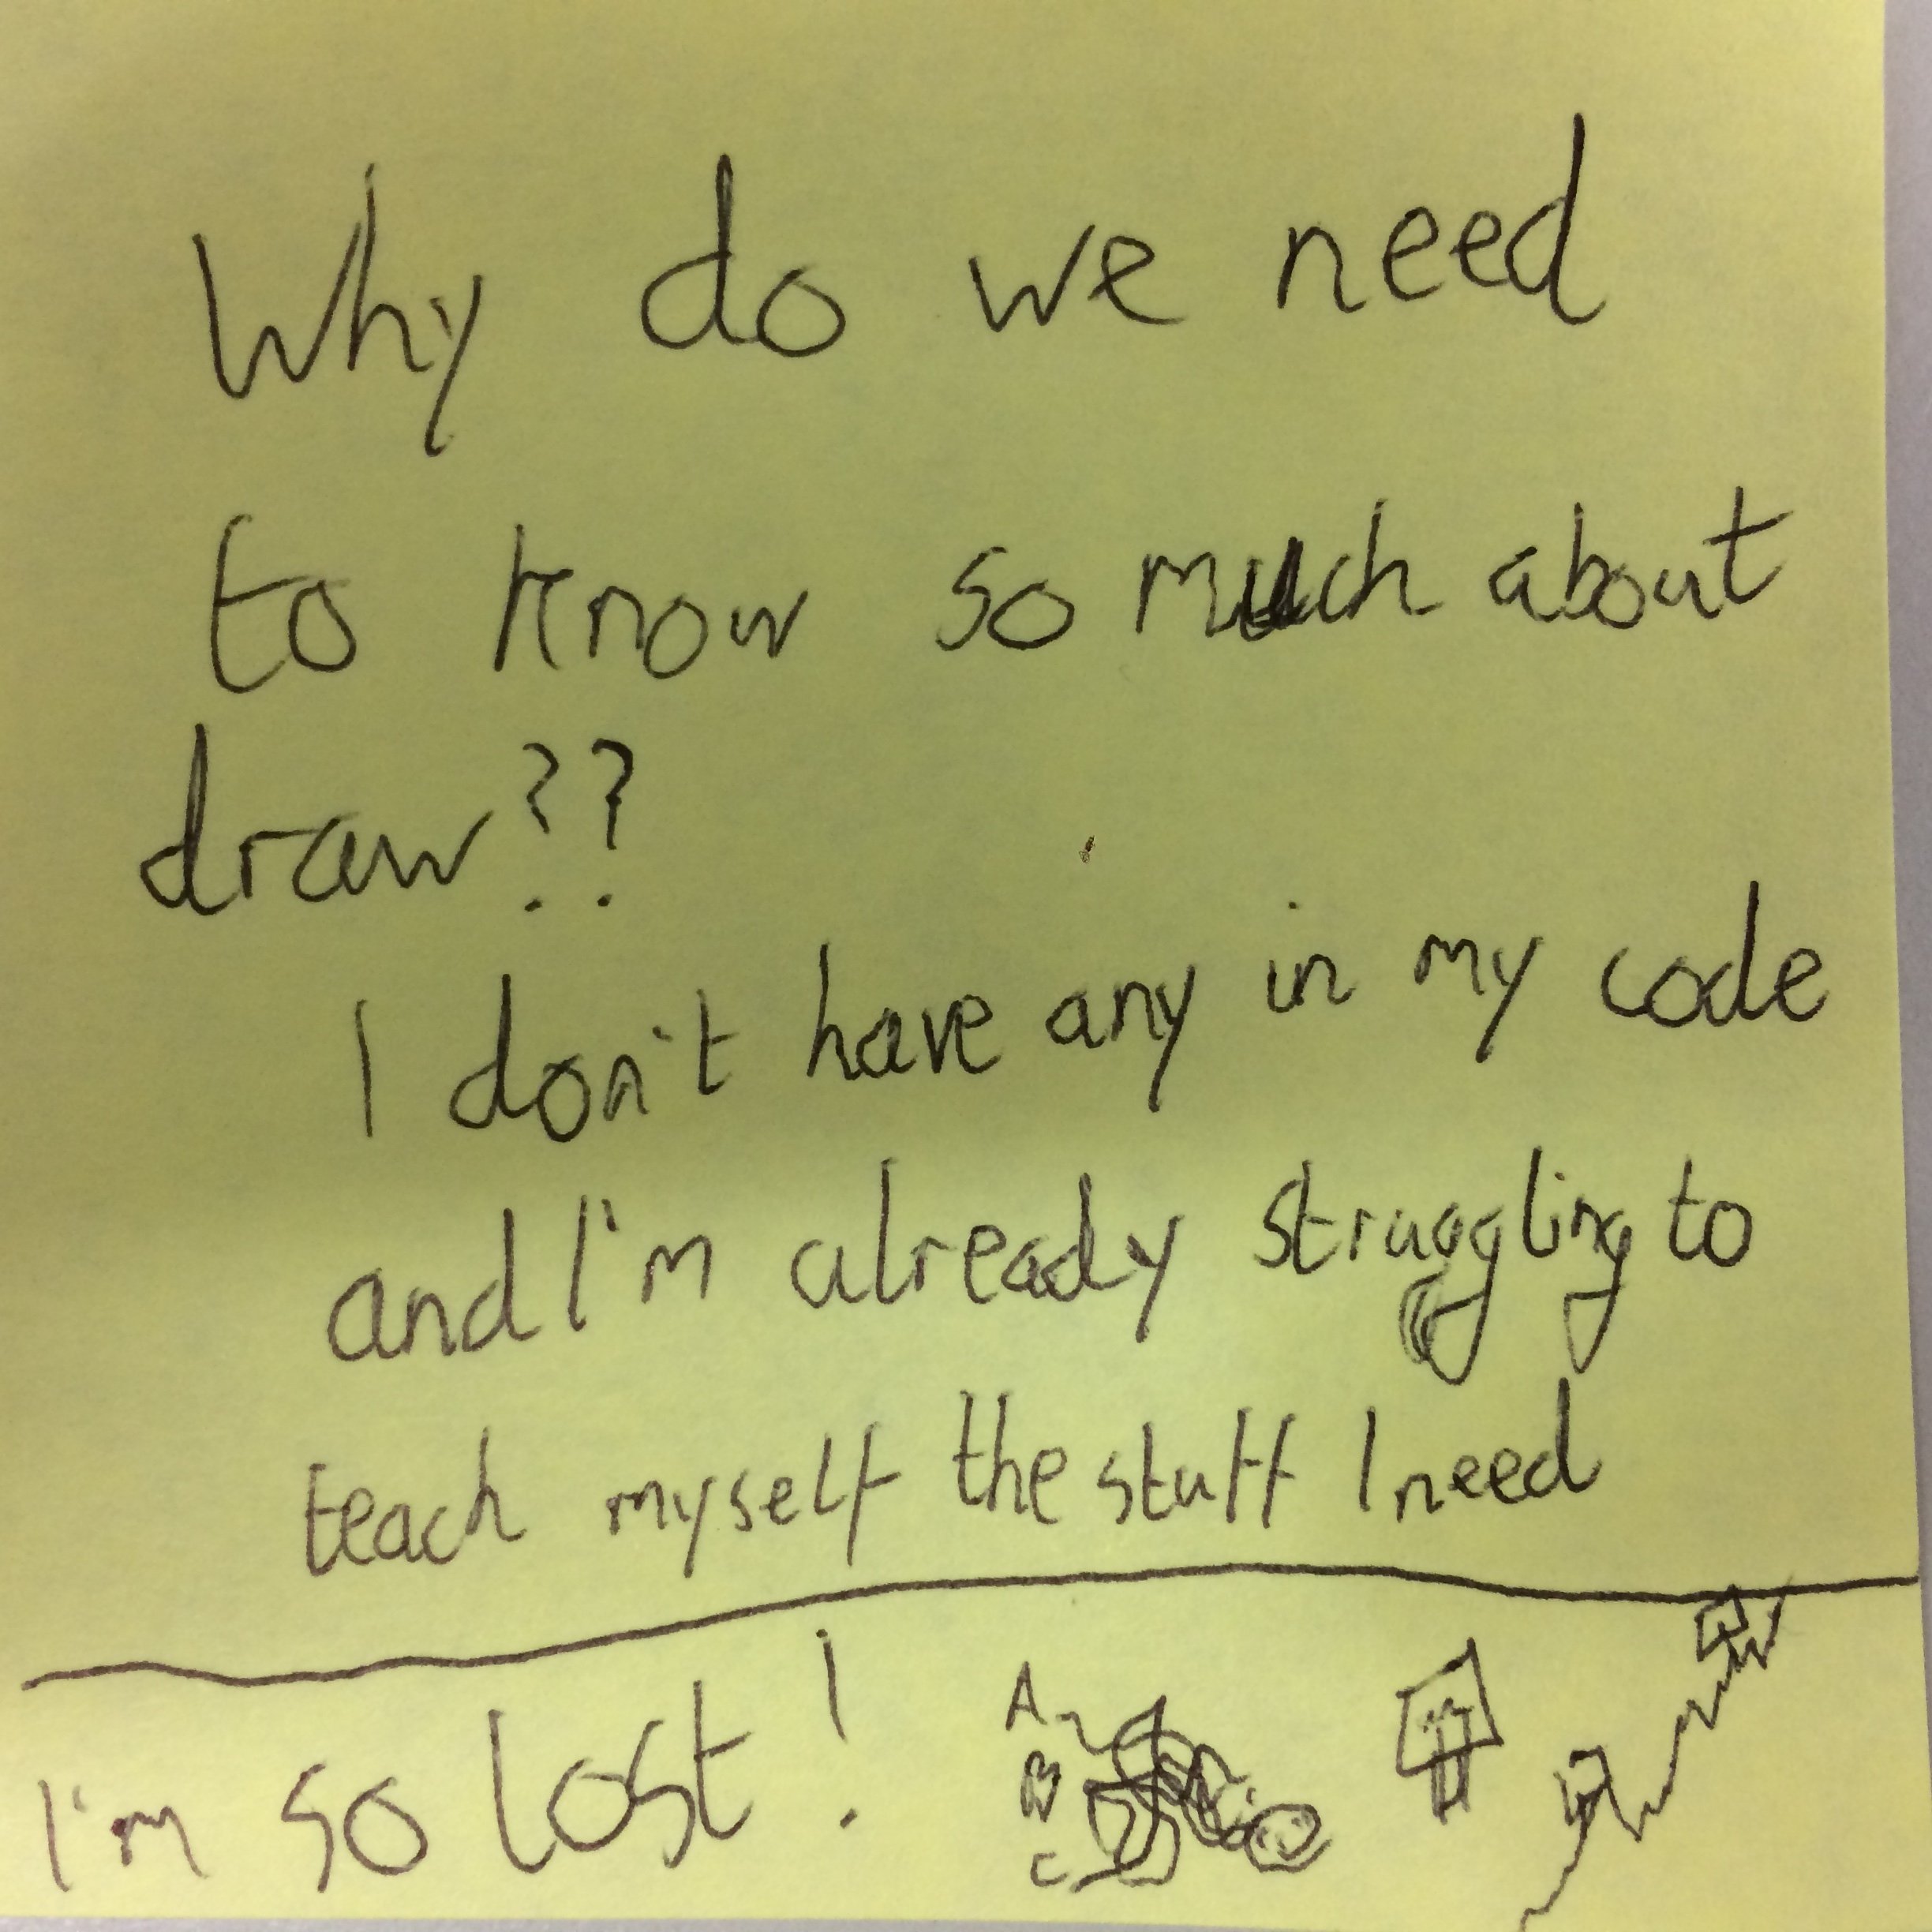 Why do we need
to know so much about
draw??
I don't have any in my code
and I'm already struggling to
teach myself the stuff I need
I'm so lost!
A
B
C